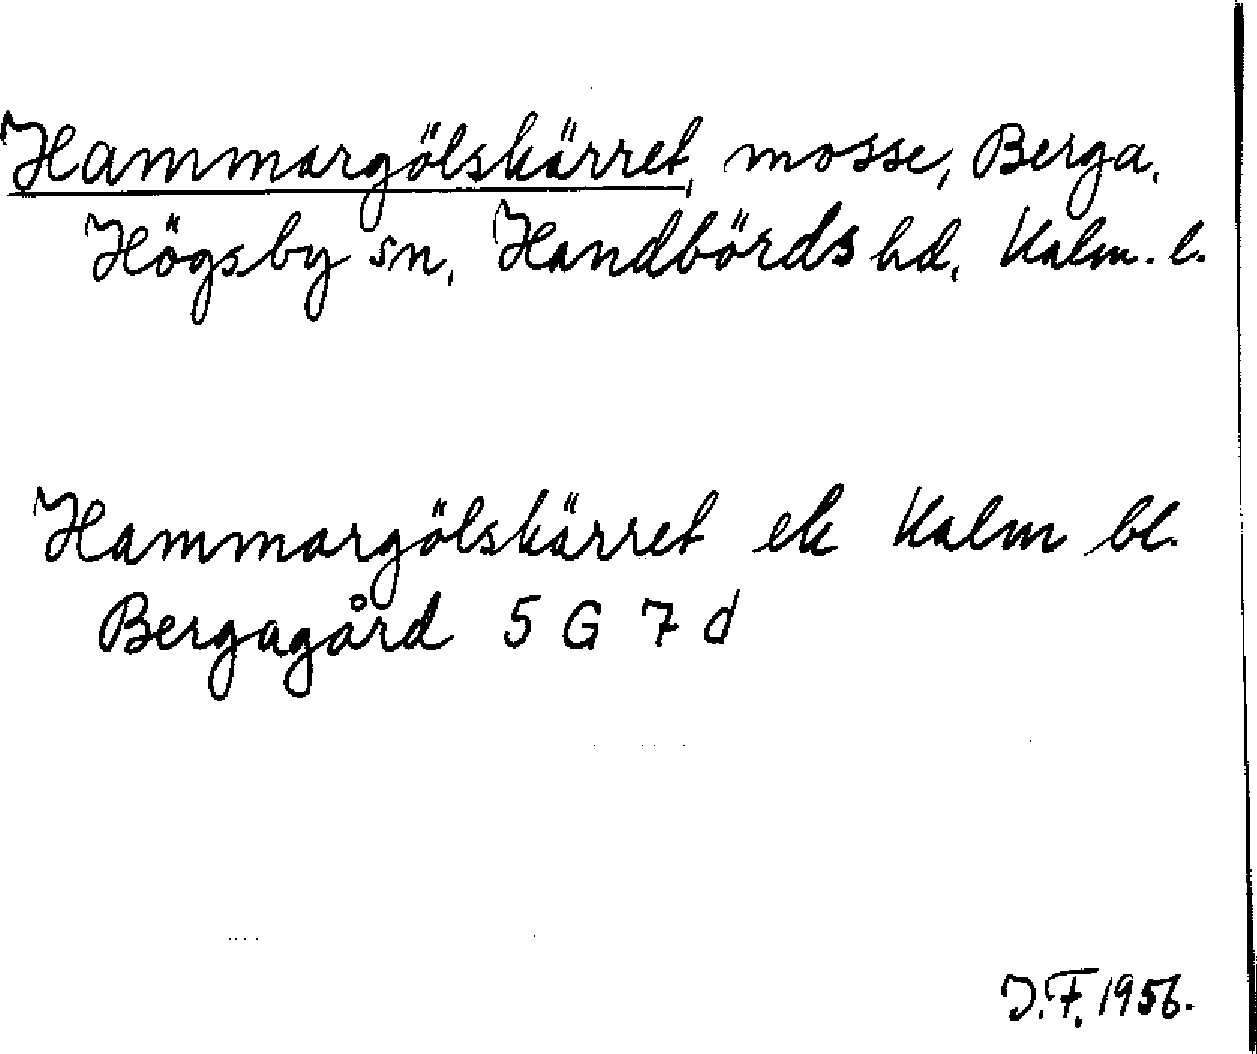 Hammargölskärret, mosse, Berga,
Högsby sn, Handbörds hd, Kalm. l.
Hammargölskärret ek Kalm bl.
Bergagård 5 G 7 d
J.F. 1956.